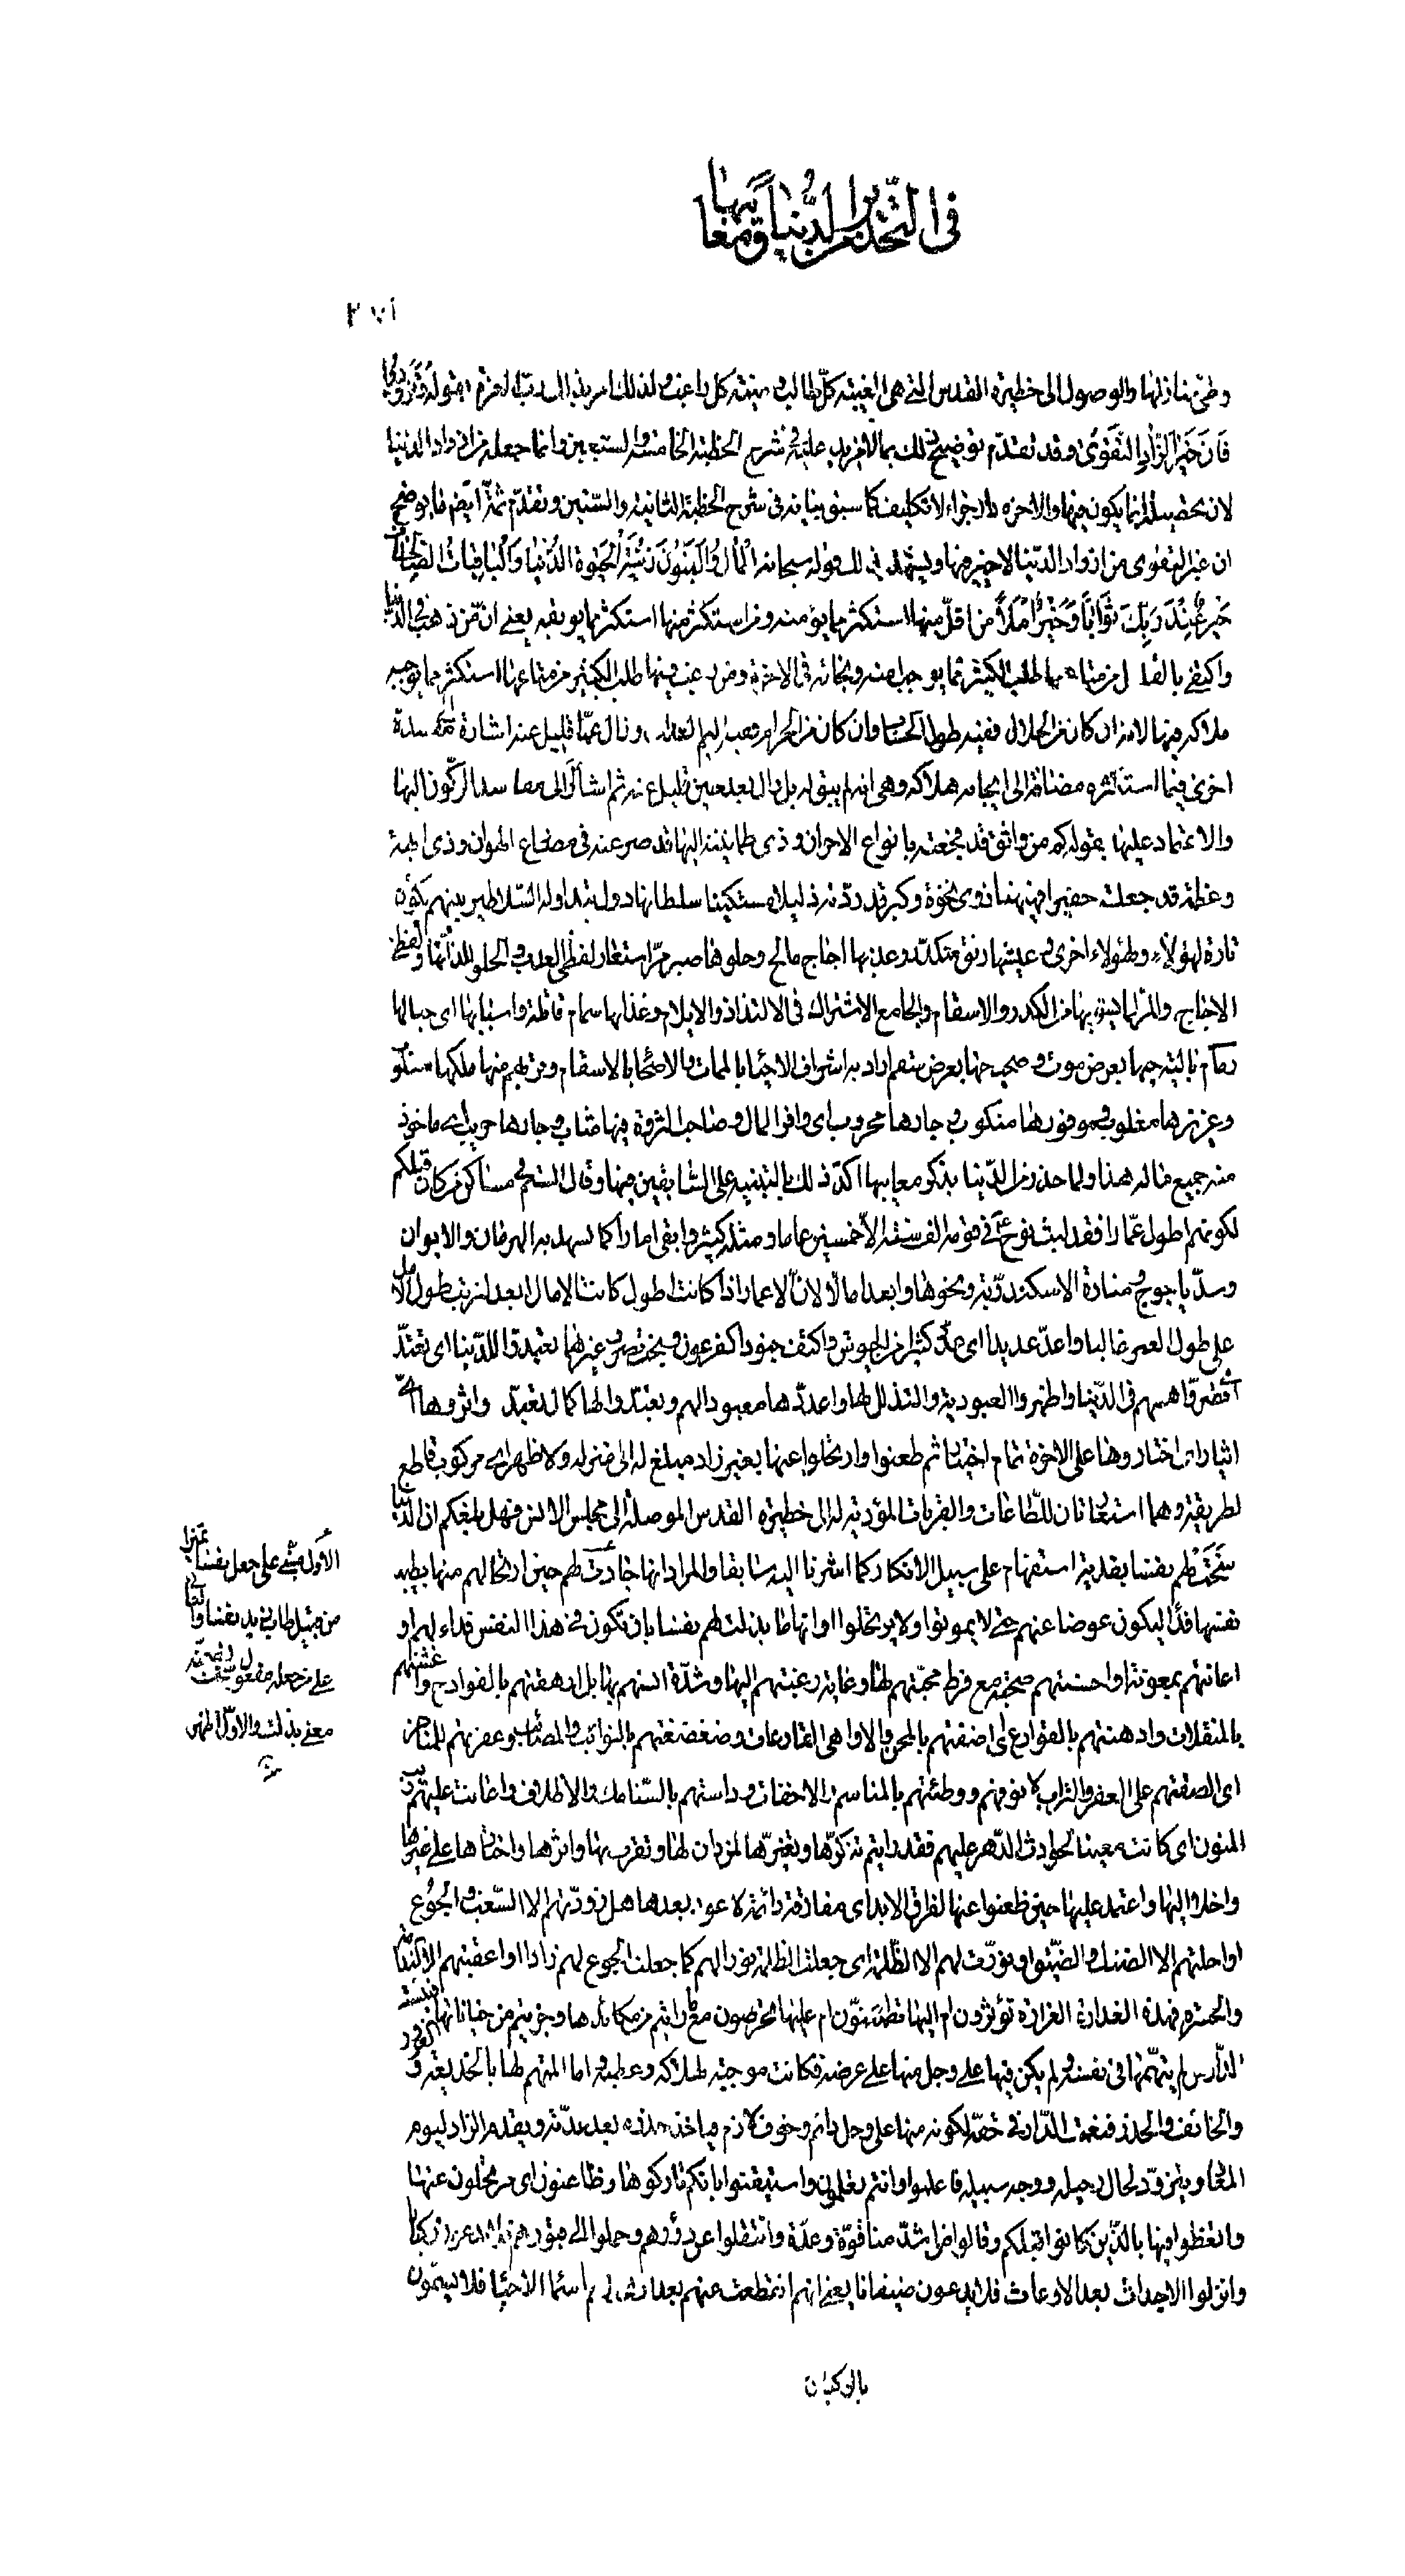 في التحذير من الدنيا ومعايبها
٢٧١
وطيّ منازلها والوصول إلى حظيرة القدس التي هي بغية كلّ طالب ومنية كل راغب ولذلك امر بذلك ربّ العزّة بقوله وَتَزَوَّدُوا
فَإِنَّ خَيْرَ الزَّادِ التَّقْوى وقد تقدّم توضيح ذلك بما لا مزيد عليه في شرح الخطبة الخامسة والسبعين وانما جعله من ازواد الدنيا
لان تحصيله انما يكون فيها والآخرة دار جزاء لا تكليف كما سبق بيانه في شرح الخطبة الثانية والستين وتقدّم ثمّة ايضا ما يوضح
ان غير التقوى من ازواد الدنيا لا خير فيها ويشهد بذلك قوله سبحانه الْمالُ وَالْبَنُونَ زِينَةُ الْحَيوةِ الدُّنْيا وَالْباقِياتُ الصَّالِحاتُ
خَيْرٌ عِنْدَ رَبِّكَ ثَواباً وَخَيْرٌ أَمَلاً من اقلّ منها استكثر مما يؤمنه ومن استكثر منها استكثر مما يوبقه يعني انّ من زهد في الدنيا
واكتفى بالقليل من متاعها طلب الكثير مما يوجب امنه ونجاته في الآخرة ومن رغب فيها طلب الكثير من متاعها استكثر مما يوجب
هلاكه فيها لانه ان كان من الحلال ففيه طول الحساب وان كان من الحرام ففيه اليم العذاب وزال عمّا قليل عنه اشارة الى مفسدة
اخرى فيما استكثره مضافة إلى ايجابه هلاكه وهي انه لم يبق له بل زال بعد حين قليل عنه ثم اشار إلى مفاسد الركون اليها
والاعتماد عليها بقوله كم من واثق قد فجعته بانواع الاحزان وذي طمأنينة اليها قد صرعته في مصارع الهوان وذي ابهة
وعظمة قد جعلته حقيرا مهينا وذي نخوة وكبر قد ردّته ذليلا مستكينا سلطانها دول يتداوله السلاطين بينهم يكون
تارة لهؤلاء ولهؤلاء اخرى وعيشها رنق متكدّر وعذبها اجاج مالح وحلوها صبر مرّ استعار لفظي العذب والحلو للذّاتها ولفظي
الاجاج والمرّ لما يشوبها من الكدر والاسقام والجامع الاشتراك في الالتذاذ والايلام وغذاؤها سمام قاتلة واسبابها اى حبالها
رمام بالية حيها بعرض موت وصحيحها بعرض سقم اراد به اشراف الاحياء بالممات والاصحاء بالاسقام وقربهم منها ملكها مسلوب
وعزيزها مغلوب وموفورها منكوب وجارها محروب اى وافر المال وصاحب الثروة فيها مصاب وجارها حريب اى ماخوذ
منه جميع ماله هذا ولما حذر من الدنيا بذكر معايبها اكدّ ذلك بالتنبيه على السابقين فيها وقال الستم في مساكن من كان قبلكم
لكونهم اطول عمارا فقد لبث نوح في قومه الف سنة الاّ خمسين عاما ومثله كثير وابقى اثارا كما تشهد به الهرمان والايوان
وسدّ ياجوج ومنارة الاسكندريّة ونحوها وابعد امالا لانّ الاعمار اذا كانت اطول كانت الامال ابعد لترتب طول الامل
على طول العمر غالبا واعدّ عديدا اى عدّ كثيرا من الجيوش واكثف جنودا كفرعون وبخت نصر وغيرهما تعبدوا للدنيا اى تعبّد
اى قصروا همهم في الدنيا واظهروا العبودية والتذلل لها واعدّها معبودا لهم وتعبدوا لها كمال التعبّد واثروها اىّ
ايثار اى اختاروها على الآخرة تمام اختيار ثم ظعنوا وارتحلوا عنها بغير زاد مبلغ له إلى منزله ولا ظهر اى مركوب قاطع
لطريقة وهما استعارتان للطّاعات والقربات المؤدية له إلى حظيرة القدس الموصلة إلى مجلس الانس فهل بلغكم ان الدنيا
سَخَتْ لهم نفسا بفدية استفهام على سبيل الانكار كما اشرنا اليه سابقا والمراد انها ما جادت لهم حين ارتحالهم منها بطيب
نفسها فداء ليكون عوضا عنهم حتى لا يموتوا ولا يرتحلوا او انها ما بذلت لهم نفسا بان تكون هذا النفس فداء لهم او
اعانتهم بمعونة او احسنت لهم صحبة مع فرط محبّتهم لها وغاية رغبتهم اليها وشدّة انسهم بها بل ارهقتهم بالفوادح وغشيتهم
بالمثقلات واوهنتهم بالقوارع اى اضعفتهم بالمحن والدواهي القارعات وضعضعتهم بالنوائب والمصائب وعفرتهم للمناخر
اى الصقتهم على العفر والتراب لانوفهم ووطئتهم بالمناسم والاخفاف وداستهم بالسّنابك والاظلاف واعانت عليهم ريب
المنون اى كانت معينا لحوادث الدّهر عليهم فقد رايتم تنكّرها وتغيّرها لمن دان لها وتقرب بها واثرها واختارها على غيرها
واخلد اليها واعتمد عليها حين ظعنوا عنها لفراق الابد اى مفارقة دائمة لا عود بعدها هل زوّدتهم الا السّغب والجوع
او احلتهم الا الضنك والضيّق او نوّرت لهم الا الظّلمة اى جعلت الظلمة نورا لهم كما جعلت الجوع لهم زادا او اعقبتهم الا الندامة
والحسرة فهذه الغدارة الغرارة تؤثرون ام اليها تطمئنّون ام عليها تحرصون مع ما رايتم من مكائدها وجربتم من خياناتها فبئست
الدار لمن لم يتهمها في نفسه ولم يكن فيها على وجل منها على عرضة فكانت موجبة لهلاكه وعطبه واما المتهم لها بالخديعة والغرور
والخائف والحذر فنعمت الدّار في حقّه لكونه منها على وجل دائم وخوف لازم فياخذ حذره بعد عدّته ويقدم الزاد ليوم
المعاد ويتزوّد لحال رحيله ووجه سبيله فاعلموا وانتم تعلمون واستيقنوا بانكم تاركوها وظاعنون اى مرتحلون عنها
واتعظوا فيها بالذّين كانوا قبلكم وقالوا من اشدّ منا قوّة وعدّة وانتقلوا عن دورهم وحملوا إلى قبورهم فلا يدعون ركبانا
وانزلوا الاجداث بعد الاوعاث فلا يدعون ضيفانا يعني انهم انقطعت عنهم بعد اسماء الاحياء فلا يسمّون
بالركبان
الأول مبني على جعل نفسا تميزا
من قبيل طاب زيد نفسا والثاني
على جعله مفعول سخت لتضمنه
معنى بذلت والاوّل اظهر
منه